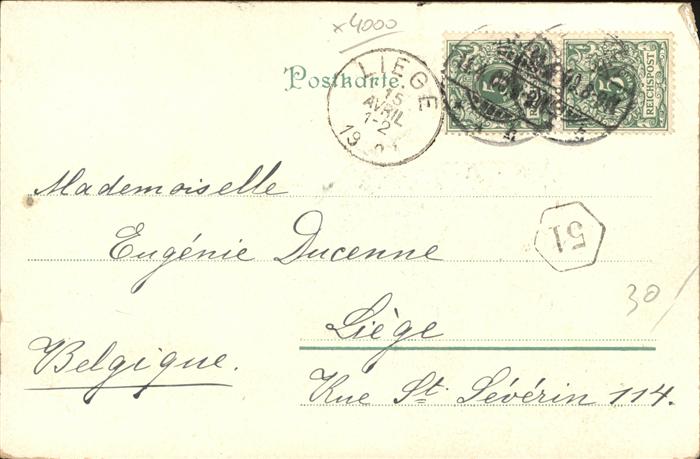 x4000
Postkarte.
LIEGE
15
AVRIL
1-2
19
5
REICHSPOST
5
REICHSPOST
Mademoiselle
Eugénie Ducenne
51
30/
Liège
Belgique.
Rue St. Sévérin 114.